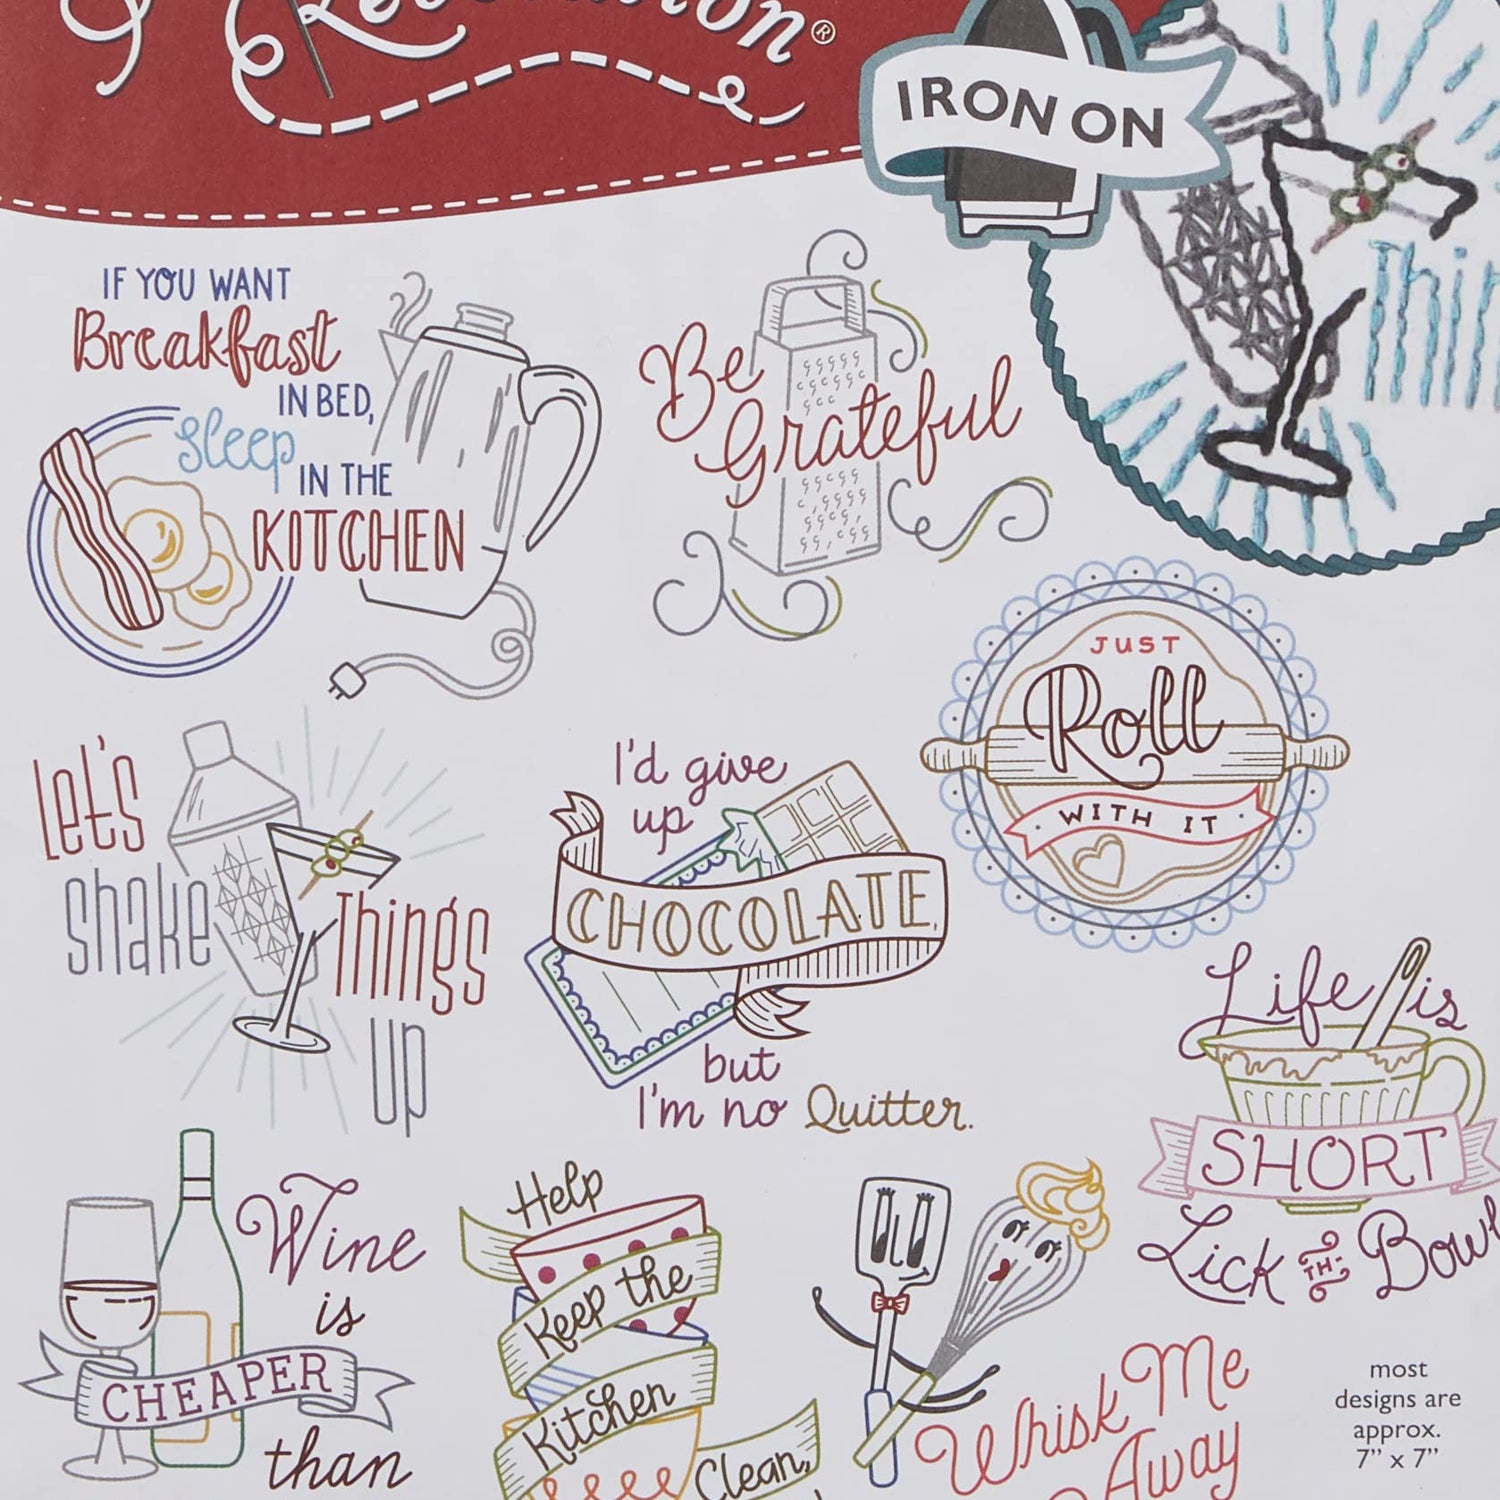 ®
IRON ON
IF YOU WANT
Breakfast
IN BED,
sleep
IN THE
KITCHEN
Be
Grateful
JUST
Roll
WITH IT
Let's
shake
Things
UP
I'd give
up
CHOCOLATE,
but
I'm no Quitter.
Life is
SHORT
Lick THE Bowl
Wine
is
CHEAPER
than
Help
Keep the
Kitchen
Clean,
Whisk Me
Away
most
designs are
approx.
7" x 7"